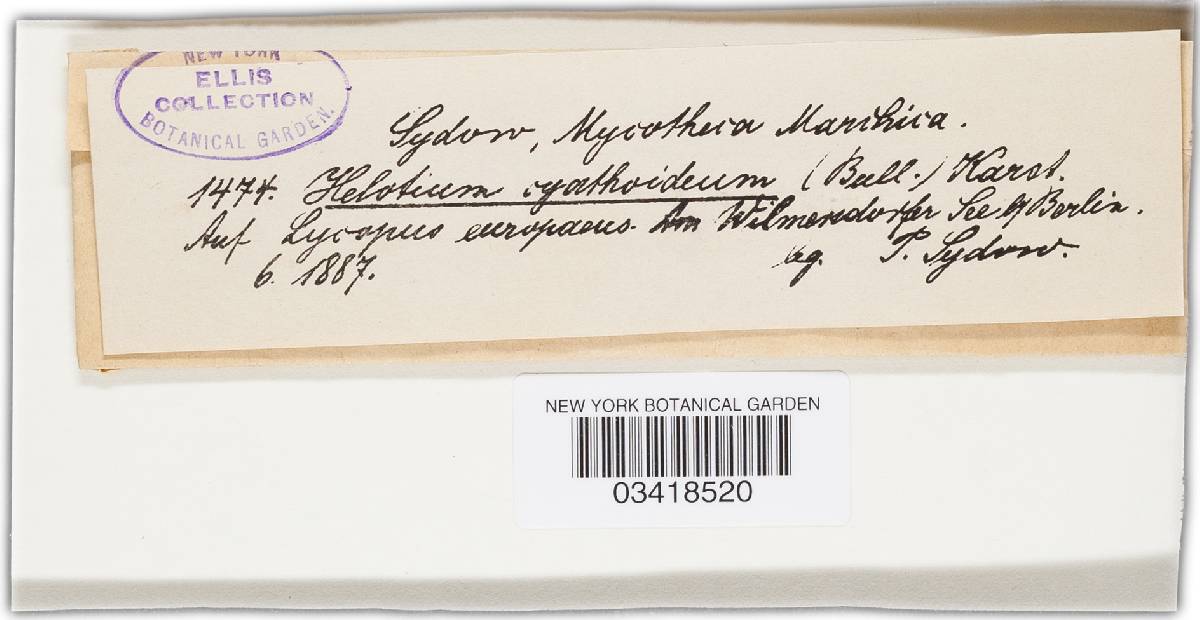 NEW YORK
ELLIS
COLLECTION
BOTANICAL GARDEN.
Sydow, Mycotheca Marchica.
1474. Helotium cyathoideum (Bull.) Karst.
Auf Lycopus europaeus. Am Wilmersdorfer See b/ Berlin.
6. 1887. leg. P. Sydow.
NEW YORK BOTANICAL GARDEN
03418520